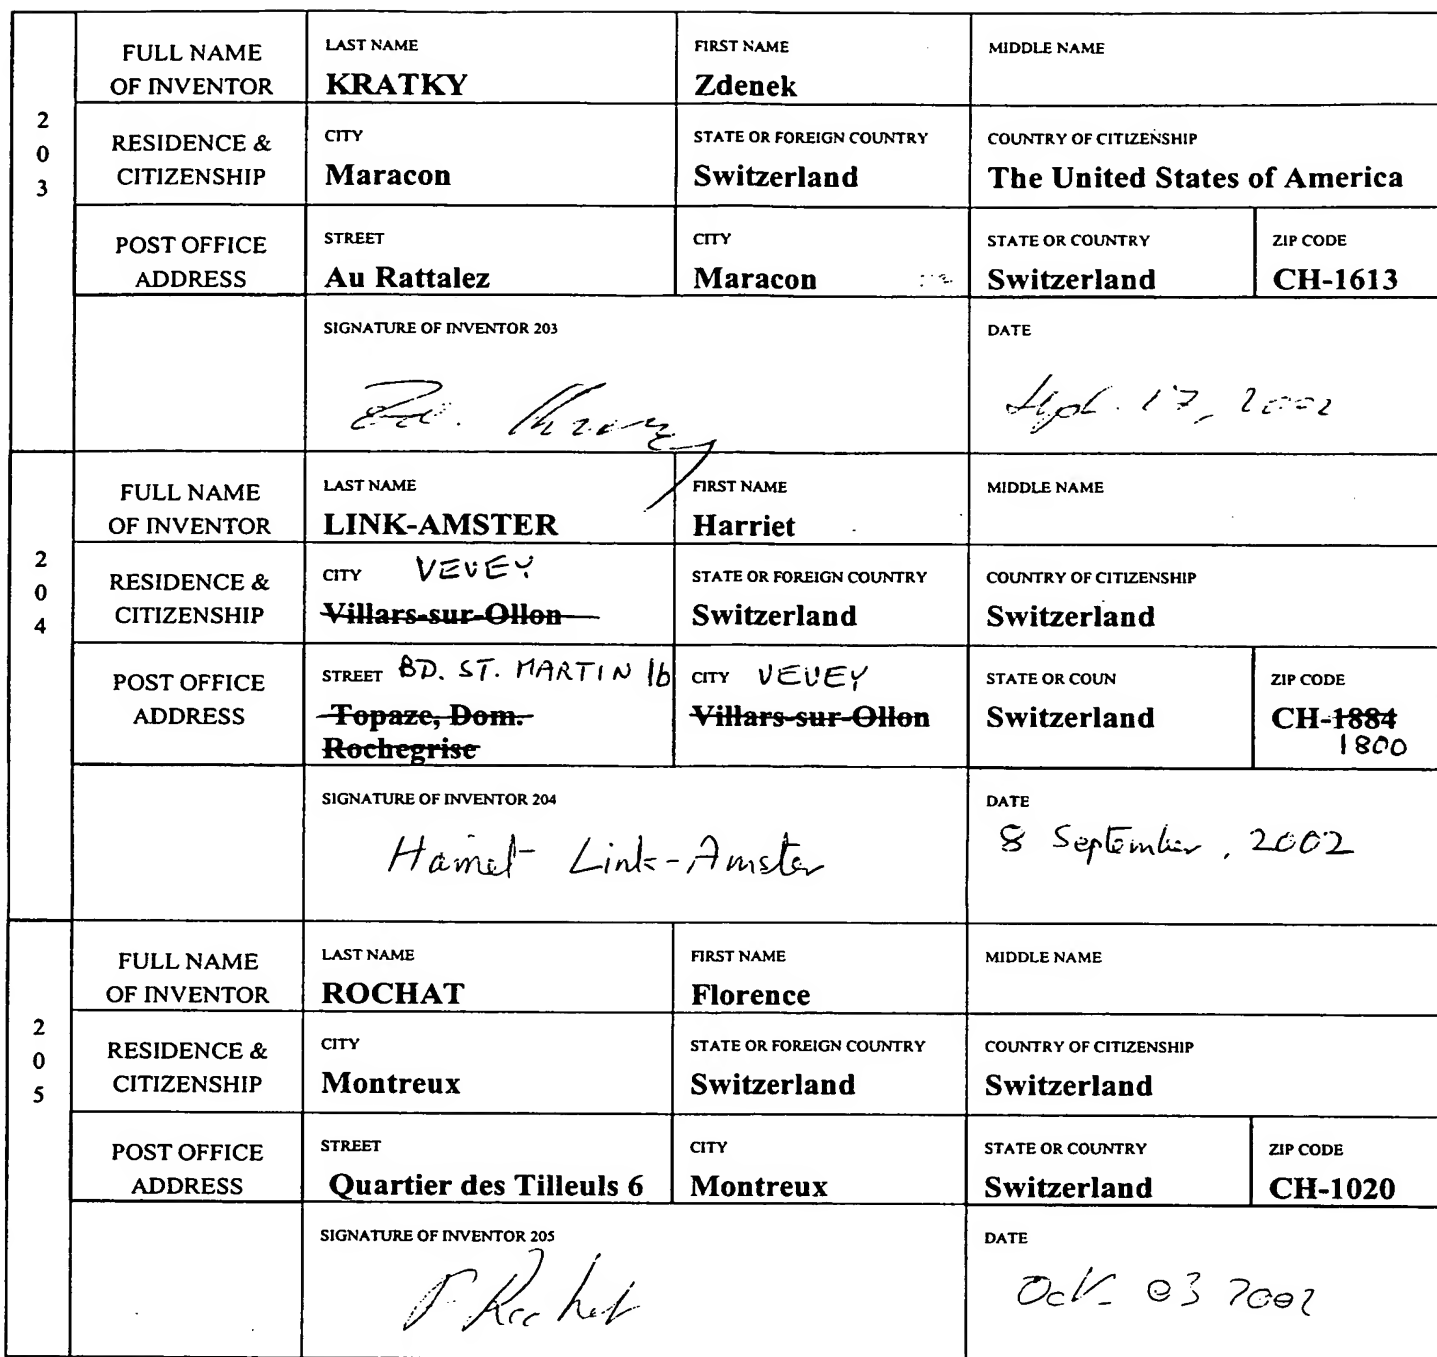 FULL NAME OF INVENTOR
LAST NAME
KRATKY
FIRST NAME
Zdenek
MIDDLE NAME
203
RESIDENCE & CITIZENSHIP
CITY
Maracon
STATE OR FOREIGN COUNTRY
Switzerland
COUNTRY OF CITIZENSHIP
The United States of America
POST OFFICE ADDRESS
STREET
Au Rattalez
CITY
Maracon
STATE OR COUNTRY
Switzerland
ZIP CODE
CH-1613
SIGNATURE OF INVENTOR 203
DATE
Sept. 17, 2002
FULL NAME OF INVENTOR
LAST NAME
LINK-AMSTER
FIRST NAME
Harriet
MIDDLE NAME
204
RESIDENCE & CITIZENSHIP
CITY VEVEY
Villars-sur-Ollon
STATE OR FOREIGN COUNTRY
Switzerland
COUNTRY OF CITIZENSHIP
Switzerland
POST OFFICE ADDRESS
STREET BD. ST. MARTIN 16
Topaze, Dom.
Rochegrise
CITY VEVEY
Villars-sur-Ollon
STATE OR COUN
Switzerland
ZIP CODE
CH-1884
1800
SIGNATURE OF INVENTOR 204
Harriet Link-Amster
DATE
8 September, 2002
FULL NAME OF INVENTOR
LAST NAME
ROCHAT
FIRST NAME
Florence
MIDDLE NAME
205
RESIDENCE & CITIZENSHIP
CITY
Montreux
STATE OR FOREIGN COUNTRY
Switzerland
COUNTRY OF CITIZENSHIP
Switzerland
POST OFFICE ADDRESS
STREET
Quartier des Tilleuls 6
CITY
Montreux
STATE OR COUNTRY
Switzerland
ZIP CODE
CH-1020
SIGNATURE OF INVENTOR 205
F. Rochat
DATE
Oct. 03 2002